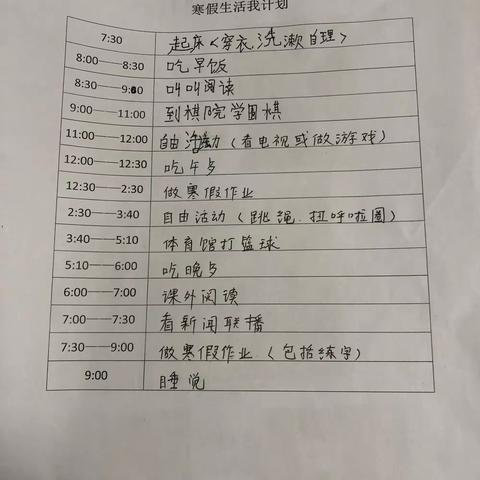 寒假生活我计划
7:30 起床<穿衣洗漱自理>
8:00——8:30 吃早饭
8:30——9:00 叫叫阅读
9:00——11:00 到棋院学围棋
11:00——12:00 自由活动（看电视或做游戏）
12:00——12:30 吃午歺
12:30——2:30 做寒假作业
2:30——3:40 自由活动（跳绳.扭呼啦圈）
3:40——5:10 体育馆打篮球
5:10——6:00 吃晚歺
6:00——7:00 课外阅读
7:00——7:30 看新闻联播
7:30——9:00 做寒假作业（包括练字）
9:00 睡觉